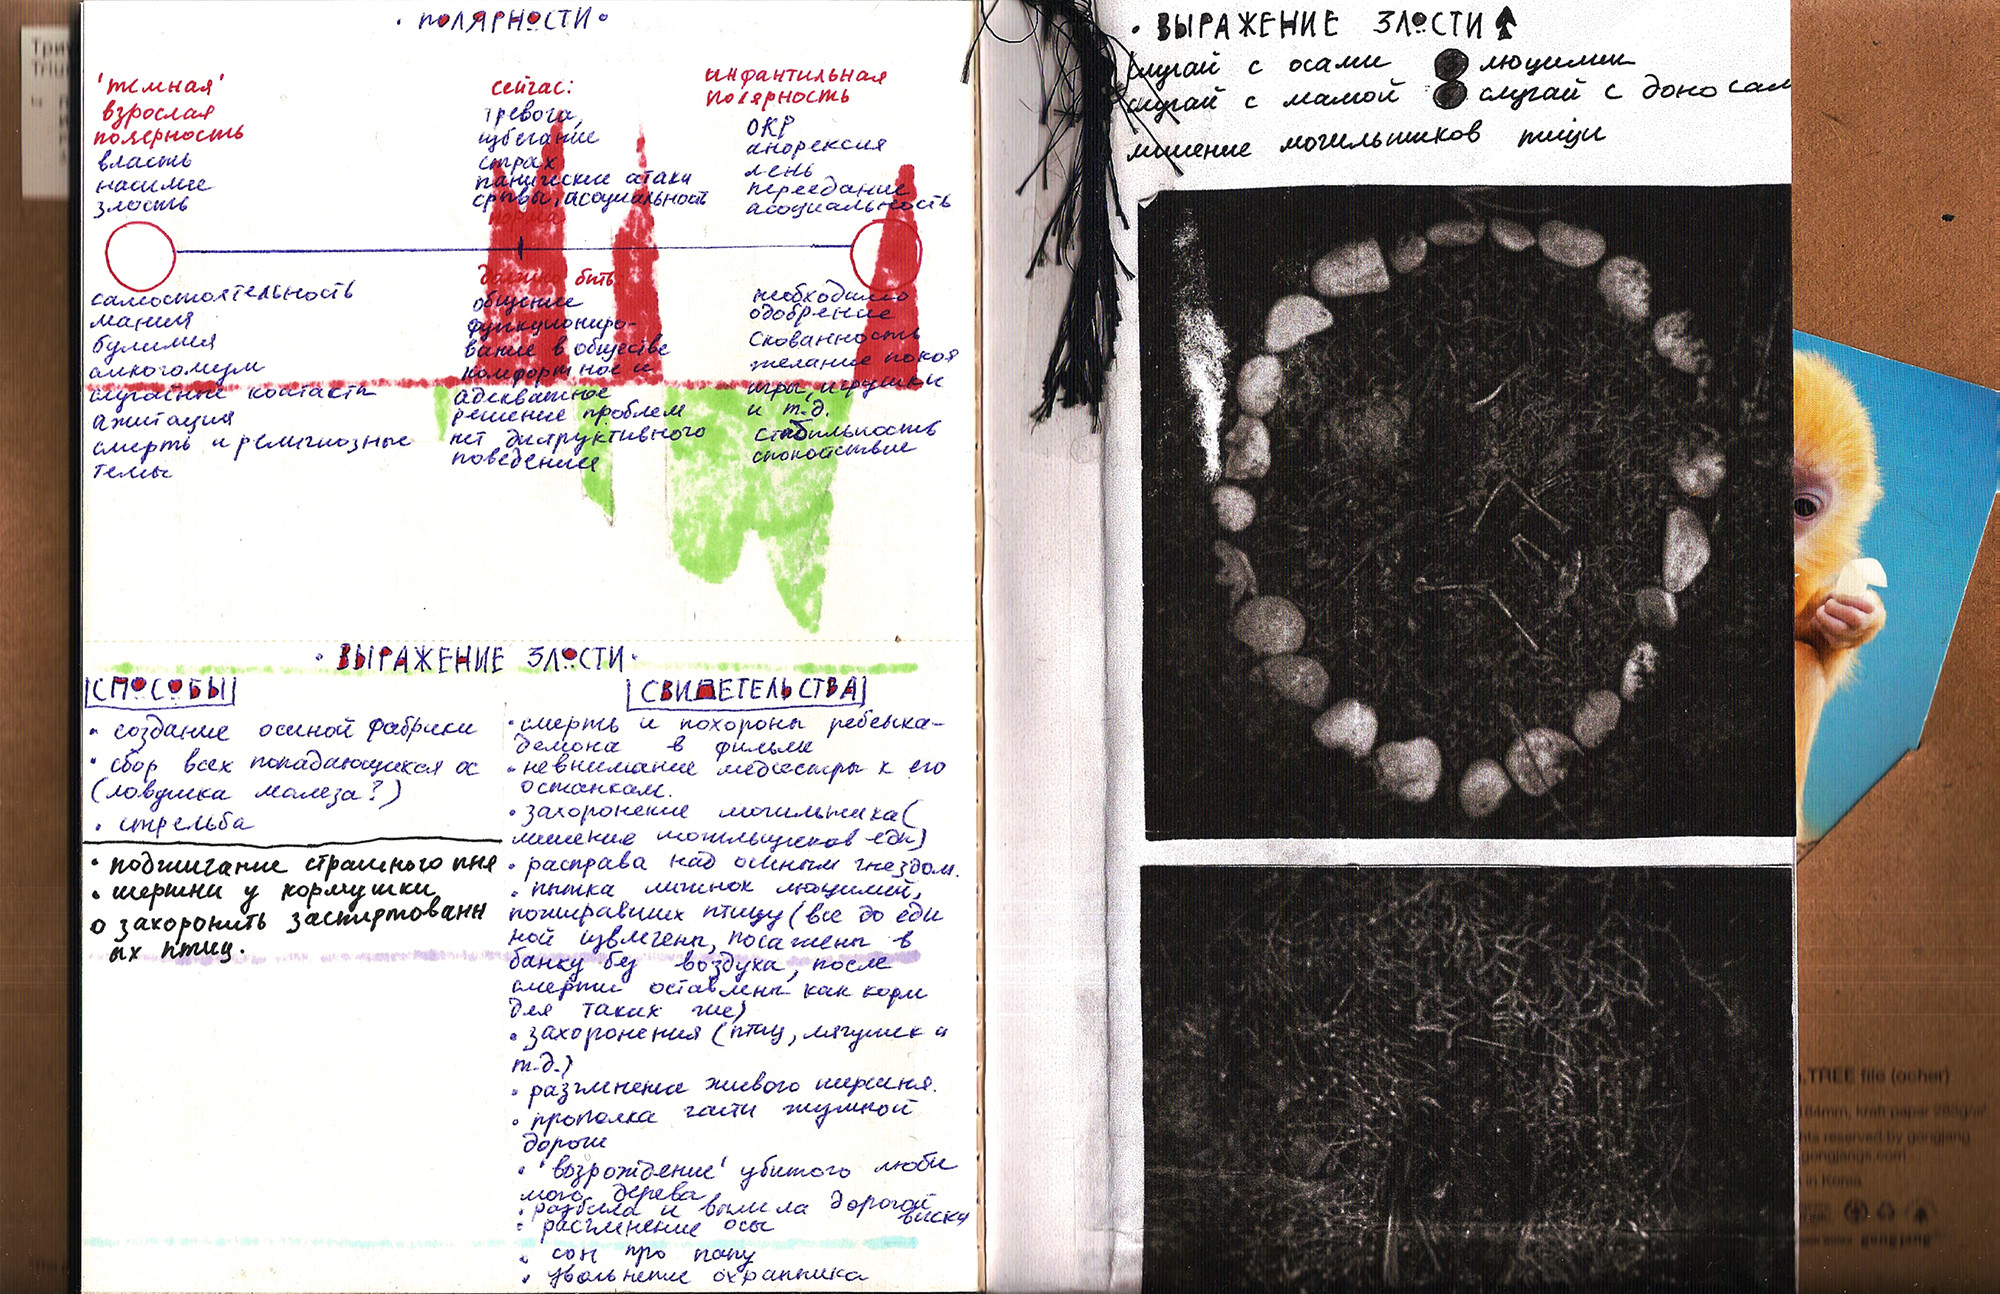 • ПОЛЯРНОСТИ •
'тёмная'
взрослая
полярность
власть
насилие
злость
сейчас:
тревога,
избегание
страх
панические атаки
срывы, асоциальность
норма
инфантильная
полярность
ОКР
анорексия
лень
переедание
асоциальность
самостоятельность
мания
булимия
алкоголизм
случайные контакты
ажитация
смерть и религиозные
темы
должно быть:
общение
функциониро-
вание в обществе
комфортное и
адекватное
решение проблем
нет диструктивного
поведения
необходимо
одобрение
скованность
желание покоя
игры, игрушки
и т.д.
стабильность
спокойствие
• ВЫРАЖЕНИЕ ЗЛОСТИ •
СПОСОБЫ
• создание осиной фабрики
• сбор всех попадающихся ос
(ловушка малеза?)
• стрельба
• поджигание страшного пня
• шершни у кормушки
о захоронить заспиртованн
ых птиц.
СВИДЕТЕЛЬСТВА
• смерть и похороны ребенка-
демона в фильме
• невнимание медсестры к его
останкам.
• захоронение могильника(
лишение могильщиков еды)
• расправа над осиным гнездом.
• пытка личинок люцилий,
пожиравших птицу (все до еди
ной извлечены, посажены в
банку без воздуха, после
смерти оставлены как корм
для таких же)
• захоронения (птиц, лягушек и
т.д.)
• разчленение живого шершня.
• прополка части шумной
дороги
• 'возрождение' убитого люби
мого дерева
• разбила и вылила дорогой
виски
• расчленение осы
• сон про папу
• увольнение охранника
• ВЫРАЖЕНИЕ ЗЛОСТИ
случай с осами люцилии
случай с мамой случай с доносам
лишение могильщиков пищи
Три
.TREE file (ocher)
184mm, kraft paper 283g/㎡
hts reserved by gongjang
.gongjangs.com
in Korea
gongjang